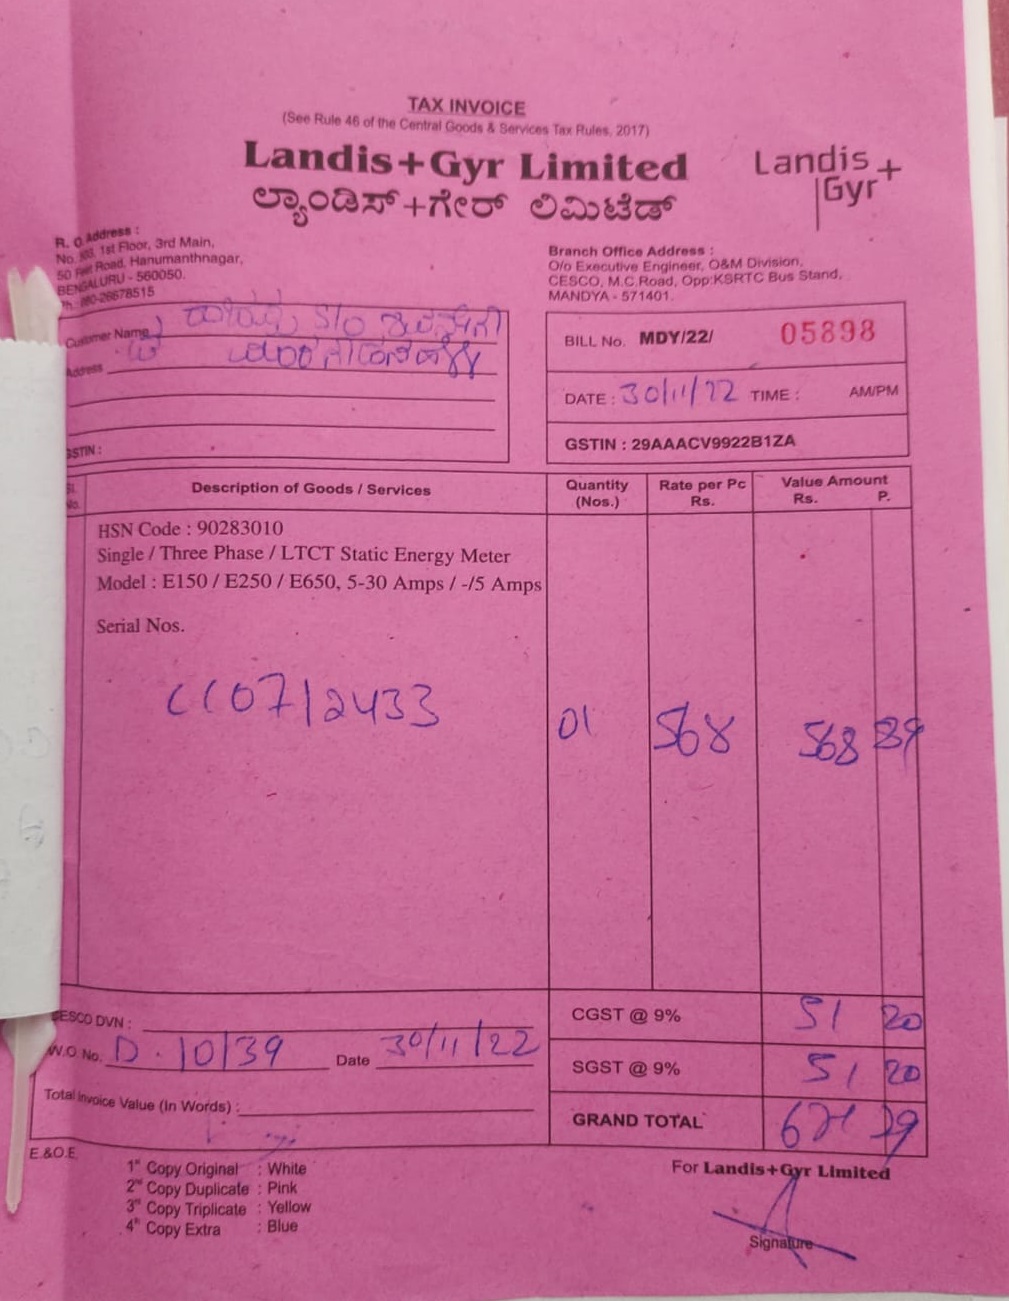 TAX INVOICE
(See Rule 46 of the Central Goods & Services Tax Rules, 2017)
Landis+Gyr Limited
ಲ್ಯಾಂಡಿಸ್+ಗೇರ್ ಲಿಮಿಟೆಡ್
Landis+
Gyr
R. O. Address :
No. 1st Floor, 3rd Main,
50 Feet Road, Hanumanthnagar,
BENGALURU - 560050.
Ph.: 080-26678515
Branch Office Address :
O/o Executive Engineer, O&M Division,
CESCO, M.C.Road, Opp:KSRTC Bus Stand,
MANDYA - 571401.
Customer Name S/O
Address
GSTIN :
BILL No. MDY/22/ 05898
DATE : 30/11/22 TIME : AM/PM
GSTIN : 29AAACV9922B1ZA
Sl. No. Description of Goods / Services Quantity (Nos.) Rate per Pc Rs. Value Amount Rs. P.
HSN Code : 90283010
Single / Three Phase / LTCT Static Energy Meter
Model : E150 / E250 / E650, 5-30 Amps / -/5 Amps
Serial Nos.
01 568 568 89
CESCO DVN :
CGST @ 9% 51 20
W.O. No. D.10/39 Date 30/11/22
SGST @ 9% 51 20
Total Invoice Value (In Words) :
GRAND TOTAL
E.&O.E.
1st Copy Original : White
2nd Copy Duplicate : Pink
3rd Copy Triplicate : Yellow
4th Copy Extra : Blue
For Landis+Gyr Limited
Signature